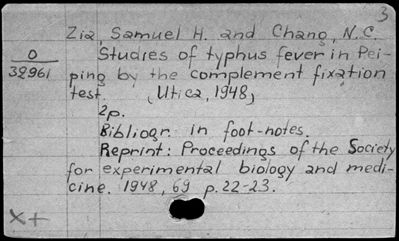 3
Zia, Samuel H. and Chang, N.C.
O
32961
Studies of typhus fever in Pei-
ping by the complement fixation
test. (Utica, 1948)
2p.
Bibliogr. in foot-notes.
Reprint: Proceedings of the Society
for experimental biology and medi-
cine. 1948, 69 p.22-23.
X+